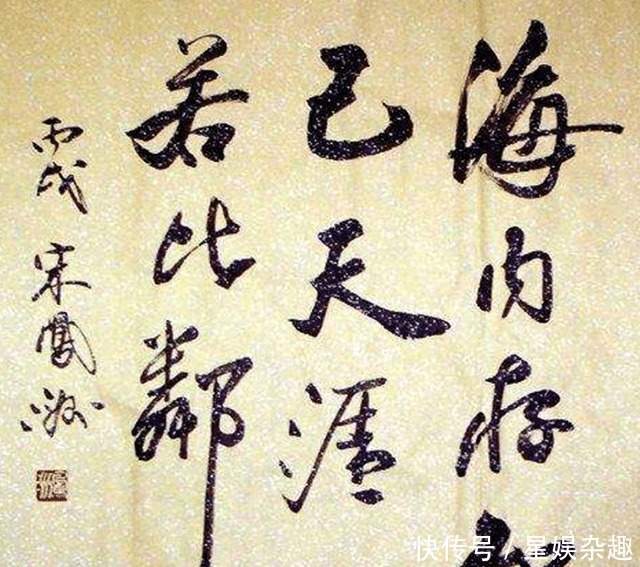 海内存知
己天涯
若比鄰
丙戌 宋鳳洲
快传号 / 星娱杂趣